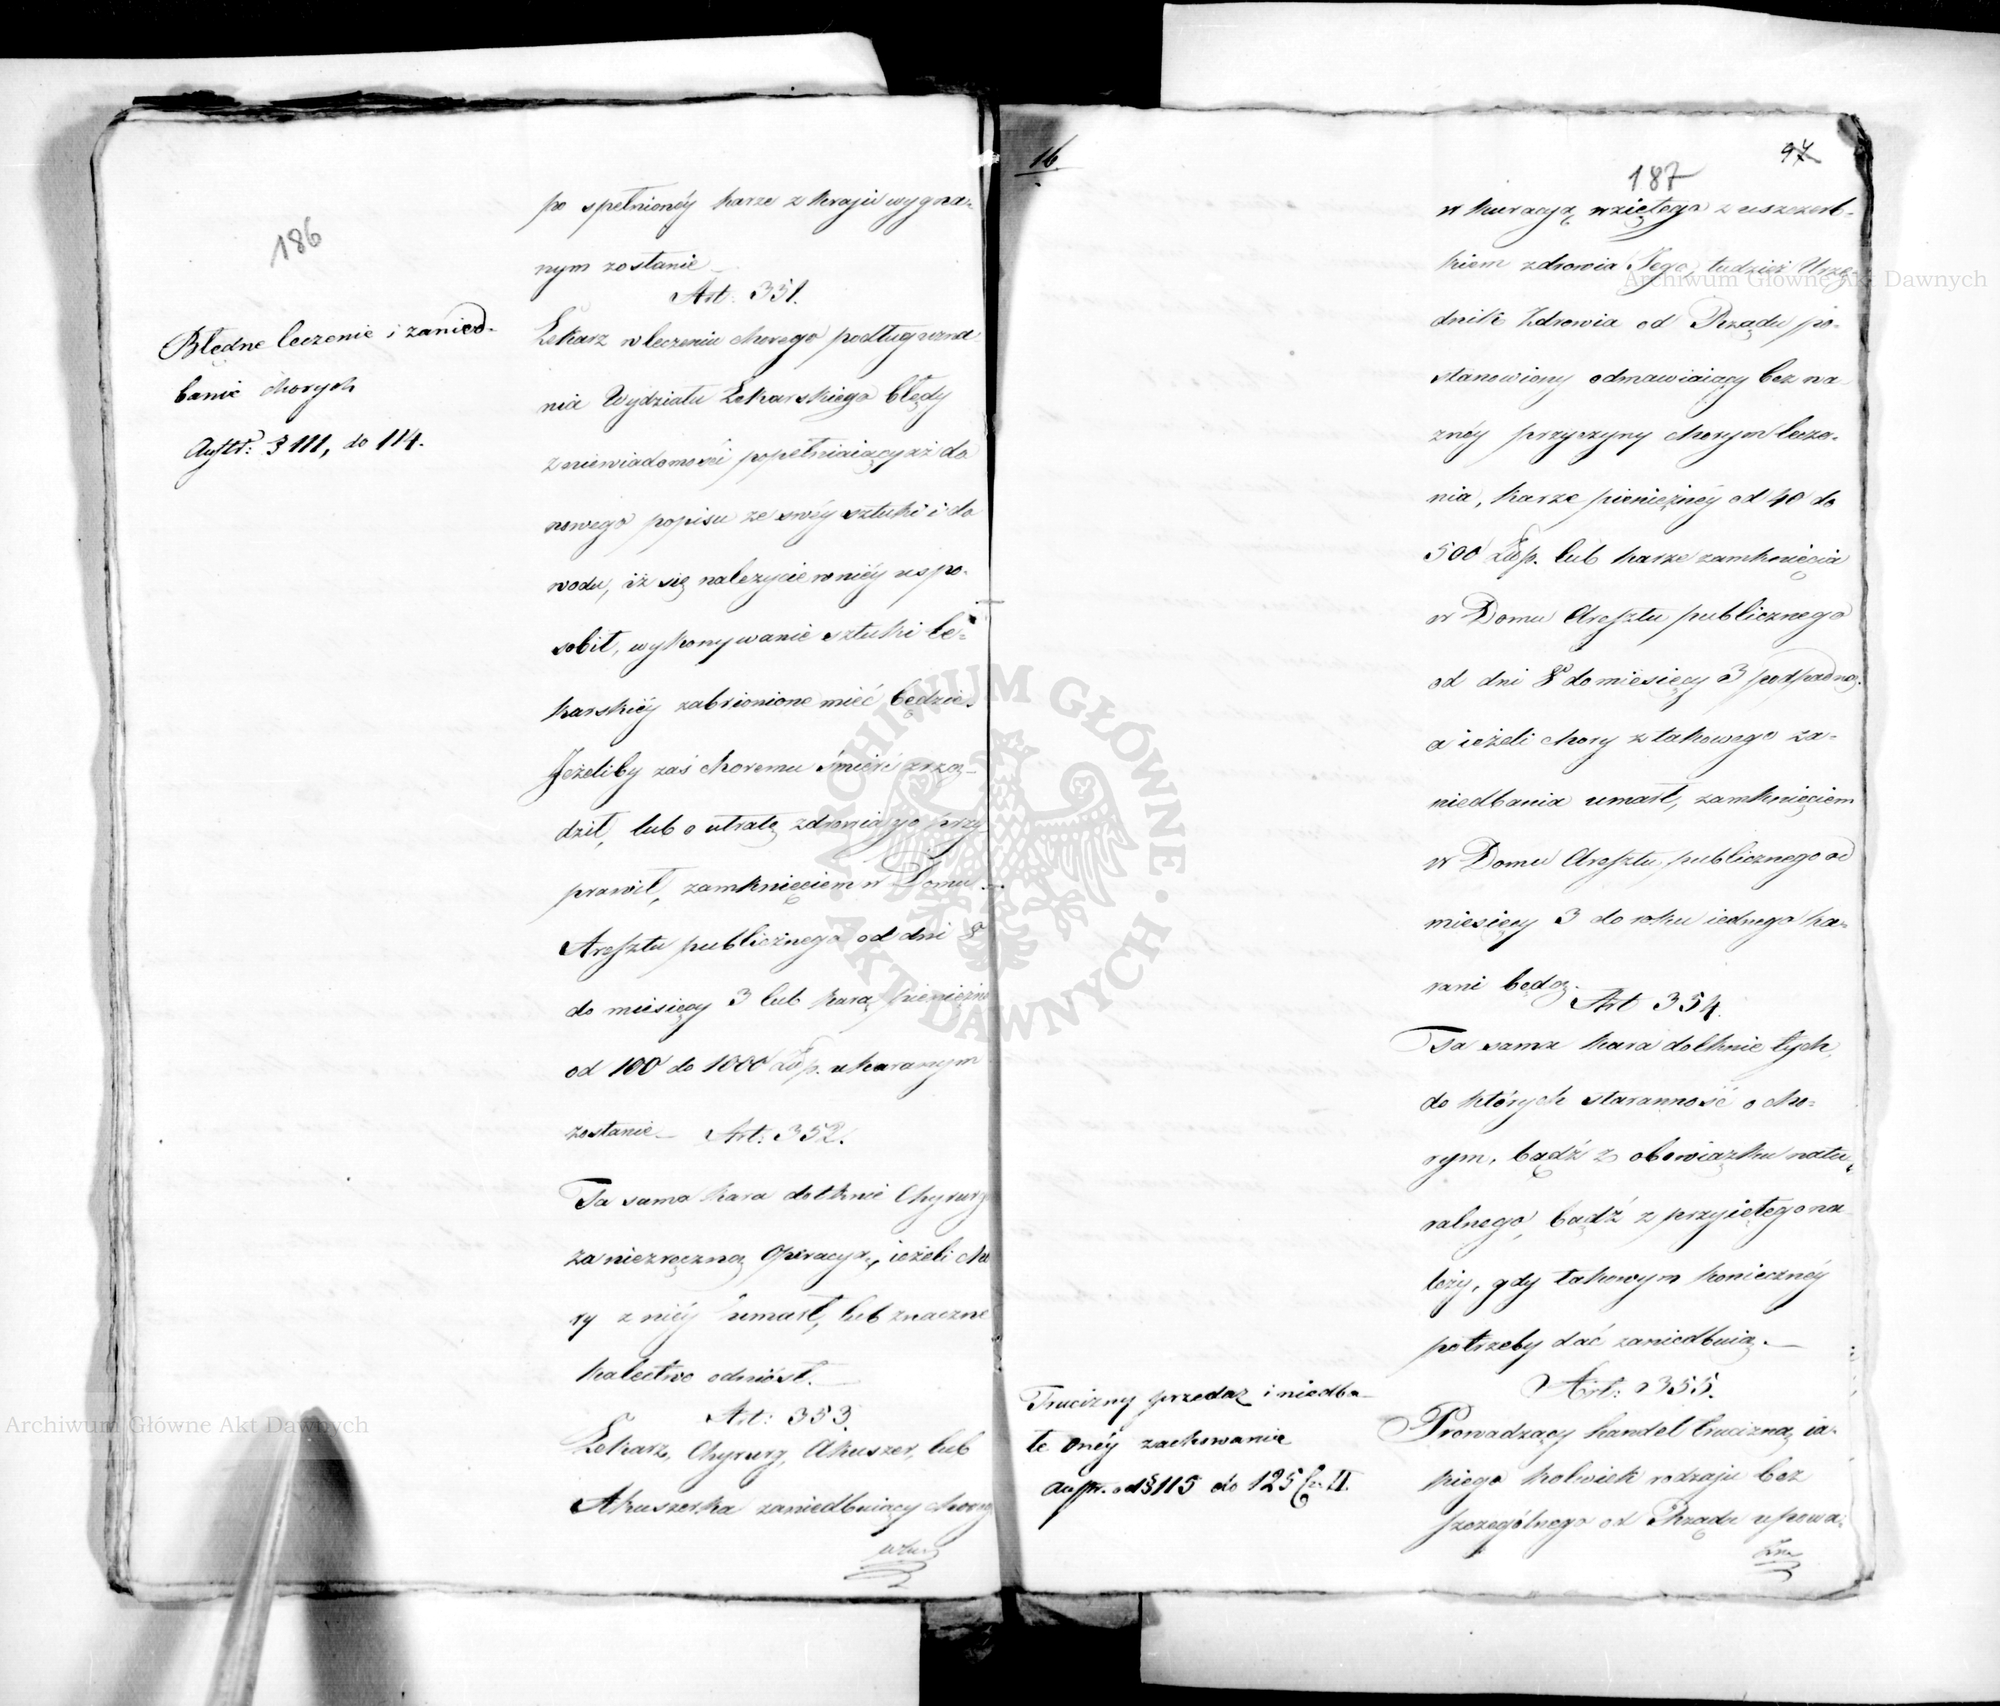 186
po spełnionéy karze z kraju wygna-
nym zostanie
Art: 351.
Błędne leczenie i zanied-
banie chorych
Austr: § 111, do 114.
Lekarz w leczeniu chorego podług uzna
nia Wydziału Lekarskiego błędy
z niewiadomości popełniaiący aż do
nowego popisu ze swéy sztuki i do
wodu, iż się należycie w niéy uspo-
sobił, wykonywanie sztuki le-
karskiéy zabronione mieć będzie.
Jeżeliby zaś choremu śmierć zrzą-
dził, lub o utratę zdrowia go przy
prawił, zamknięciem w Domu
Aresztu publicznego od dni 8
do miesięcy 3 lub karą pieniężną
od 100 do 1000 Złp. ukaranym
zostanie Art: 352.
Ta sama kara dotknie Chyrurga
za niezręczną Operacyą, ieżeli cho
ry z niéy umarł, lub znaczne
kalectwo odniósł.
Art: 353.
Lekarz, Chyrurg, Akuszer, lub
Akuszerka zaniedbuiący chorego
w ku
16
97
187
w kuracyą wziętego z uszczerb-
kiem zdrowia Jego, tudzież Urzę-
dnik Zdrowia od Rządu po-
stanowiony odmawiaiący bez wa-
żnéy przyczyny chorym lecze-
nia, karze pieniężnéy od 40 do
500 Złp. lub karze zamknięcia
w Domu Aresztu publicznego
od dni 8 do miesięcy 3 podpadną,
a ieżeli chory z takowego za-
niedbania umarł, zamknięciem
w Domu Aresztu publicznego od
miesięcy 3 do roku iednego ka-
rani będą.
Art 354.
Ta sama kara dotknie tych,
do których staranność o cho-
rym, bądź z obowiązku natu-
ralnego, bądź z przyiętego na
leży, gdy takowym koniecznéy
potrzeby dać zaniedbuią.
Art: 355.
Trucizny przedaż i niedba-
łe onéy zachowanie
Austr. od § 115 do 125 Cz. II.
Prowadzący handel trucizną ia-
kiego kolwiek rodzaju bez
szczególnego od Rządu upowa-
żnie
Archiwum Główne Akt Dawnych
Archiwum Główne Akt Dawnych
ARCHIWUM GŁÓWNE · AKT DAWNYCH ·